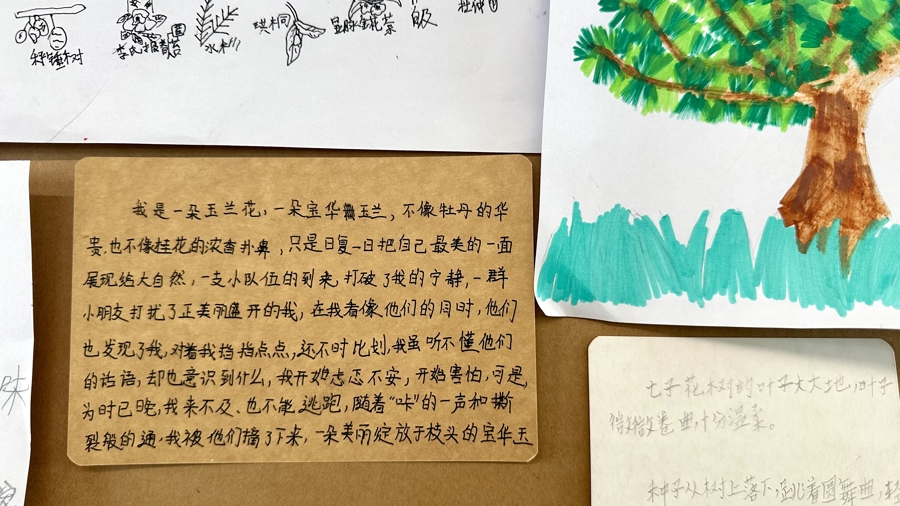 秤锤树
水杉
珙桐
杜仲
我是一朵玉兰花，一朵宝华玉兰，不像牡丹的华
贵，也不像桂花的浓香扑鼻，只是日复一日把自己最美的一面
展现给大自然，一支小队伍的到来，打破了我的宁静，一群
小朋友打扰了正美丽盛开的我，在我看像他们的同时，他们
也发现了我，对着我指指点点，还不时比划，我虽听不懂他们
的话语，却也意识到什么，我开始忐忑不安，开始害怕，可是，
为时已晚，我来不及、也不能逃跑，随着“咔”的一声和撕
裂般的通，我被他们摘了下来，一朵美丽绽放于枝头的宝华玉
七子花树的叶子大大地，叶子
微微卷曲，十分湿柔。
种子从树上落下，跳着圆舞曲，轻